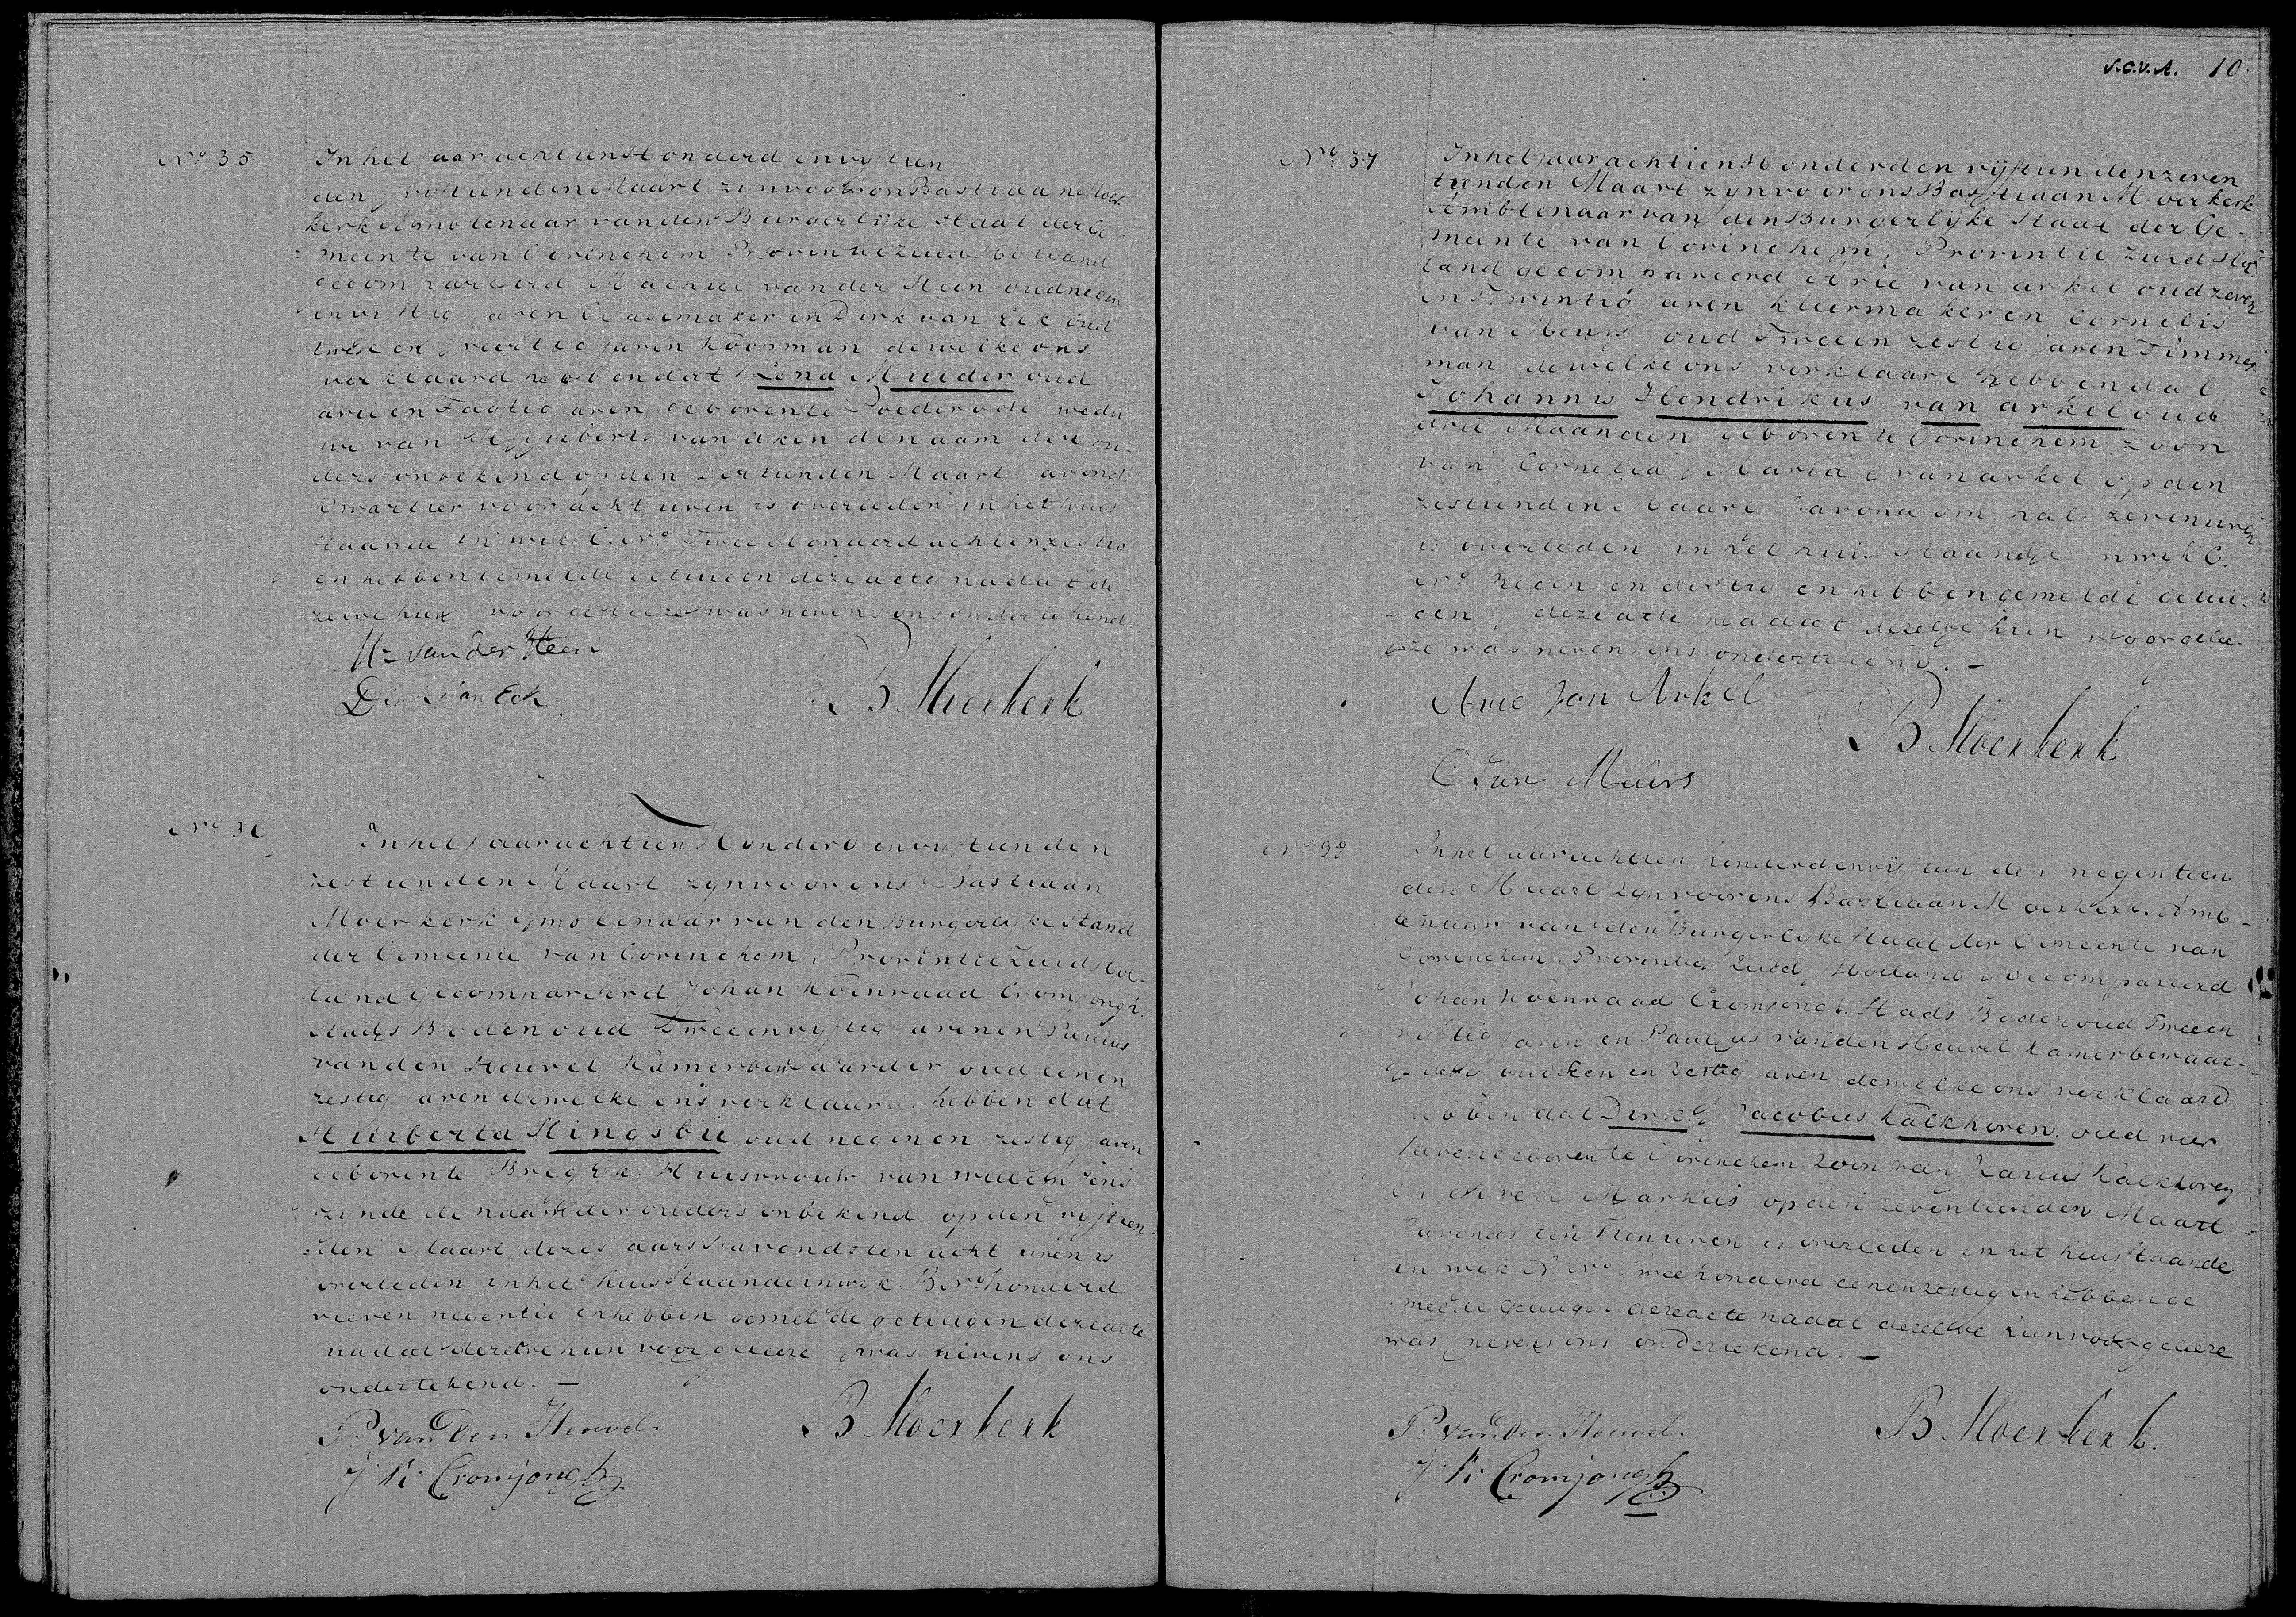 N.o 35
In het jaar achtienHonderd en vyftien
den vyftienden Maart zyn voor ons Bastiaan Moer
kerk Ambtenaar van den Burgerlijke Staat der Ge
meente van Gorinchem Provintie Zuid Holland
gecompareerd Machiel van der Steen oud negen
en vyftig jaren Glasemaker en Dirk van Eck oud
twee en veertig jaren Koopman dewelke ons
verklaard hebben dat Lena Mulder oud
drie en Tagtig jaren geboren te Poederode wedu
we van Huybert van Aken de naam der ou-
ders onbekend op den Dertienden Maart savonds
kwartier voor acht uren is overleden in het huis
staande in wyk C. No Twee Honderd acht en zestig
en hebben gemelde getuigen deze acte na dat de
zelve hun voorgeleeze was nevens ons ondertekend.
M: van der Steen
Dirk van Eck
B Moerkerk
N.o 36
In het jaar achtien Honderd en vyftien den
zestienden Maart zyn voor ons Bastiaan
Moerkerk Ambtenaar van den Burgerlyke Stand
der Gemeente van Gorinchem, Provintie Zuid Hol-
land gecompareerd Johan Koenraad Cromjongh.
Stads Boden oud Twee en vyftig jaren en Paulus
van den Heuvel Kamerbewaarder oud een en
zestig jaren dewelke ons verklaard hebben dat
Huiberta Slingsbii oud negen en zestig jaren
geboren te Breg Yk. Huisvrouw van Willem Jens
zynde de naam der ouders onbekend op den vyftien-
den Maart dezes jaars savonds ten acht uren is
overleden in het huis Staande in wyk B No honderd
vier en negentig en hebben gemelde getuigen deze acte
na dat dezelve hun voorgeleeze was nevens ons
ondertekend. —
P: van Den Heuvel
J. K. Cromjongh
B Moerkerk
S.C.V.A. 10.
N.o 37
In het jaar achtien Honderd en vijftien den zeven
tienden Maart zyn voor ons Bastiaan Moerkerk
Ambtenaar van den Burgerlyke Staat der Ge-
meente van Gorinchem, Provintie Zuid Hol
land gecompareerd Arie van arkel oud zeven
en Twintig jaren Kleermaker en Cornelis
van Meurs oud Twee en zestig jaren Timmer
man dewelke ons verklaart hebben dat
Johannis Hendrikus van arkel oud
drie Maanden geboren te Gorinchem zoon
van Cornelia Maria van arkel op den
zestienden Maart savonds om half zeven uren
is overleden in het huis Staande in wyk C.
No negen en dertig en hebben gemelde getui-
gen deze acte nadat dezelve hun voorgelee-
ze was nevens ons ondertekend. —
Arie van Arkel
C van Meurs
B Moerkerk
N.o 38
In het jaar achtien honderd en vijftien den negentien
den Maart zyn voor ons Bastiaan Moerkerk. Amb-
tenaar van den Burgerlyke Staat der Gemeente van
Gorinchem. Provintie Zuid Holland gecompareerd
Johan Koenraad Cromjongh. Stads Boden oud Twee en
vyftig jaren en Paulus van den Heuvel Kamerbewaar-
der oud Een en Zestig jaren dewelke ons verklaard
hebben dat Dirk Jacobus Kalkhoven. oud vier
Jaren geboren te Gorinchem Zoon van Karius Kalkhoven
en Markus op den zeventienden Maart
savonds ten Tien uren is overleden in het huis Staande
in wyk No Twee honderd een en zestig en hebben ge
melde getuigen deze acte nadat dezelve hun voorgeleeze
was nevens ons ondertekend. —
P: van Den Heuvel
J. K. Cromjongh
B Moerkerk.